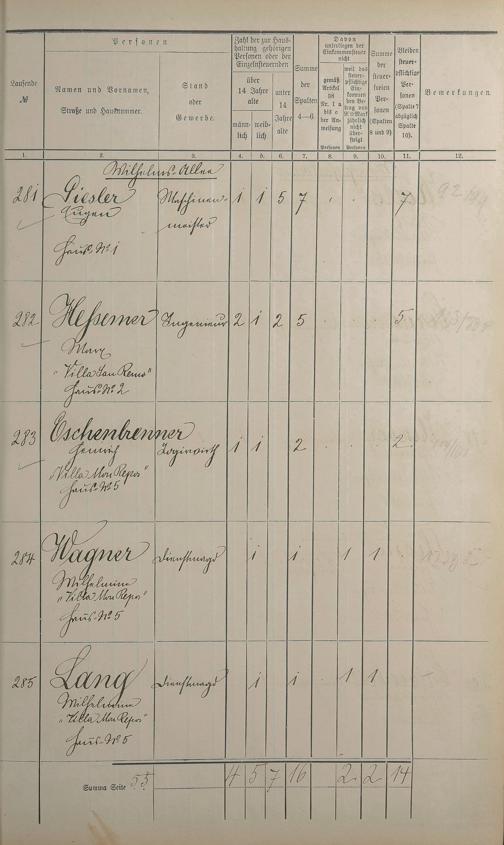 Personen
Zahl der zur Haus-
haltung gehörigen
Personen oder der
Einzelsteuernden
Davon
unterliegen der
Einkommensteuer
nicht
Summe
der
steuer-
freien
Personen
(Spalten
8 und 9).
Bleiben
steuer-
pflichtige
Per-
sonen
(Spalte 7
abzüglich
Spalte
10).
Laufende
№
Namen und Vornamen,
Straße und Hausnummer.
Stand
oder
Gewerbe.
über
14 Jahre
alte
männ-
lich
weib-
lich
unter
14
Jahre
alte
Summe
der
Spalten
4—6
gemäß
Artikel
38
Nr. 1 a
bis e
der An-
weisung
Personen
weil das
steuer-
pflichtige
Ein-
kommen
den Be-
trag von
900 Mark
jährlich
nicht
über-
steigt
Personen
Bemerkungen.
1. 2. 3. 4. 5. 6. 7. 8. 9. 10. 11. 12.
Wilhelms-Allee
281 Siesler Maschinen- 1 1 5 7 . . . 7
Eugen meister
Haus-№ 1
282 Hessemer Ingenieur 2 1 2 5 . . . 5
Max
"Villa San Remo"
Haus-№ 2
283 Eschenbrenner
Heinrich Logiswirth 1 1 2 . . . 2
"Villa Mon Repos"
Haus-№ 5
284 Wagner Dienstmagd 1 1 1 1
Wilhelmine
"Villa Mon Repos"
Haus-№ 5
285 Lang Dienstmagd 1 1 1 1
Wilhelmine
"Villa Mon Repos"
Haus-№ 5
Summa Seite 55 4 5 7 16 2 2 14